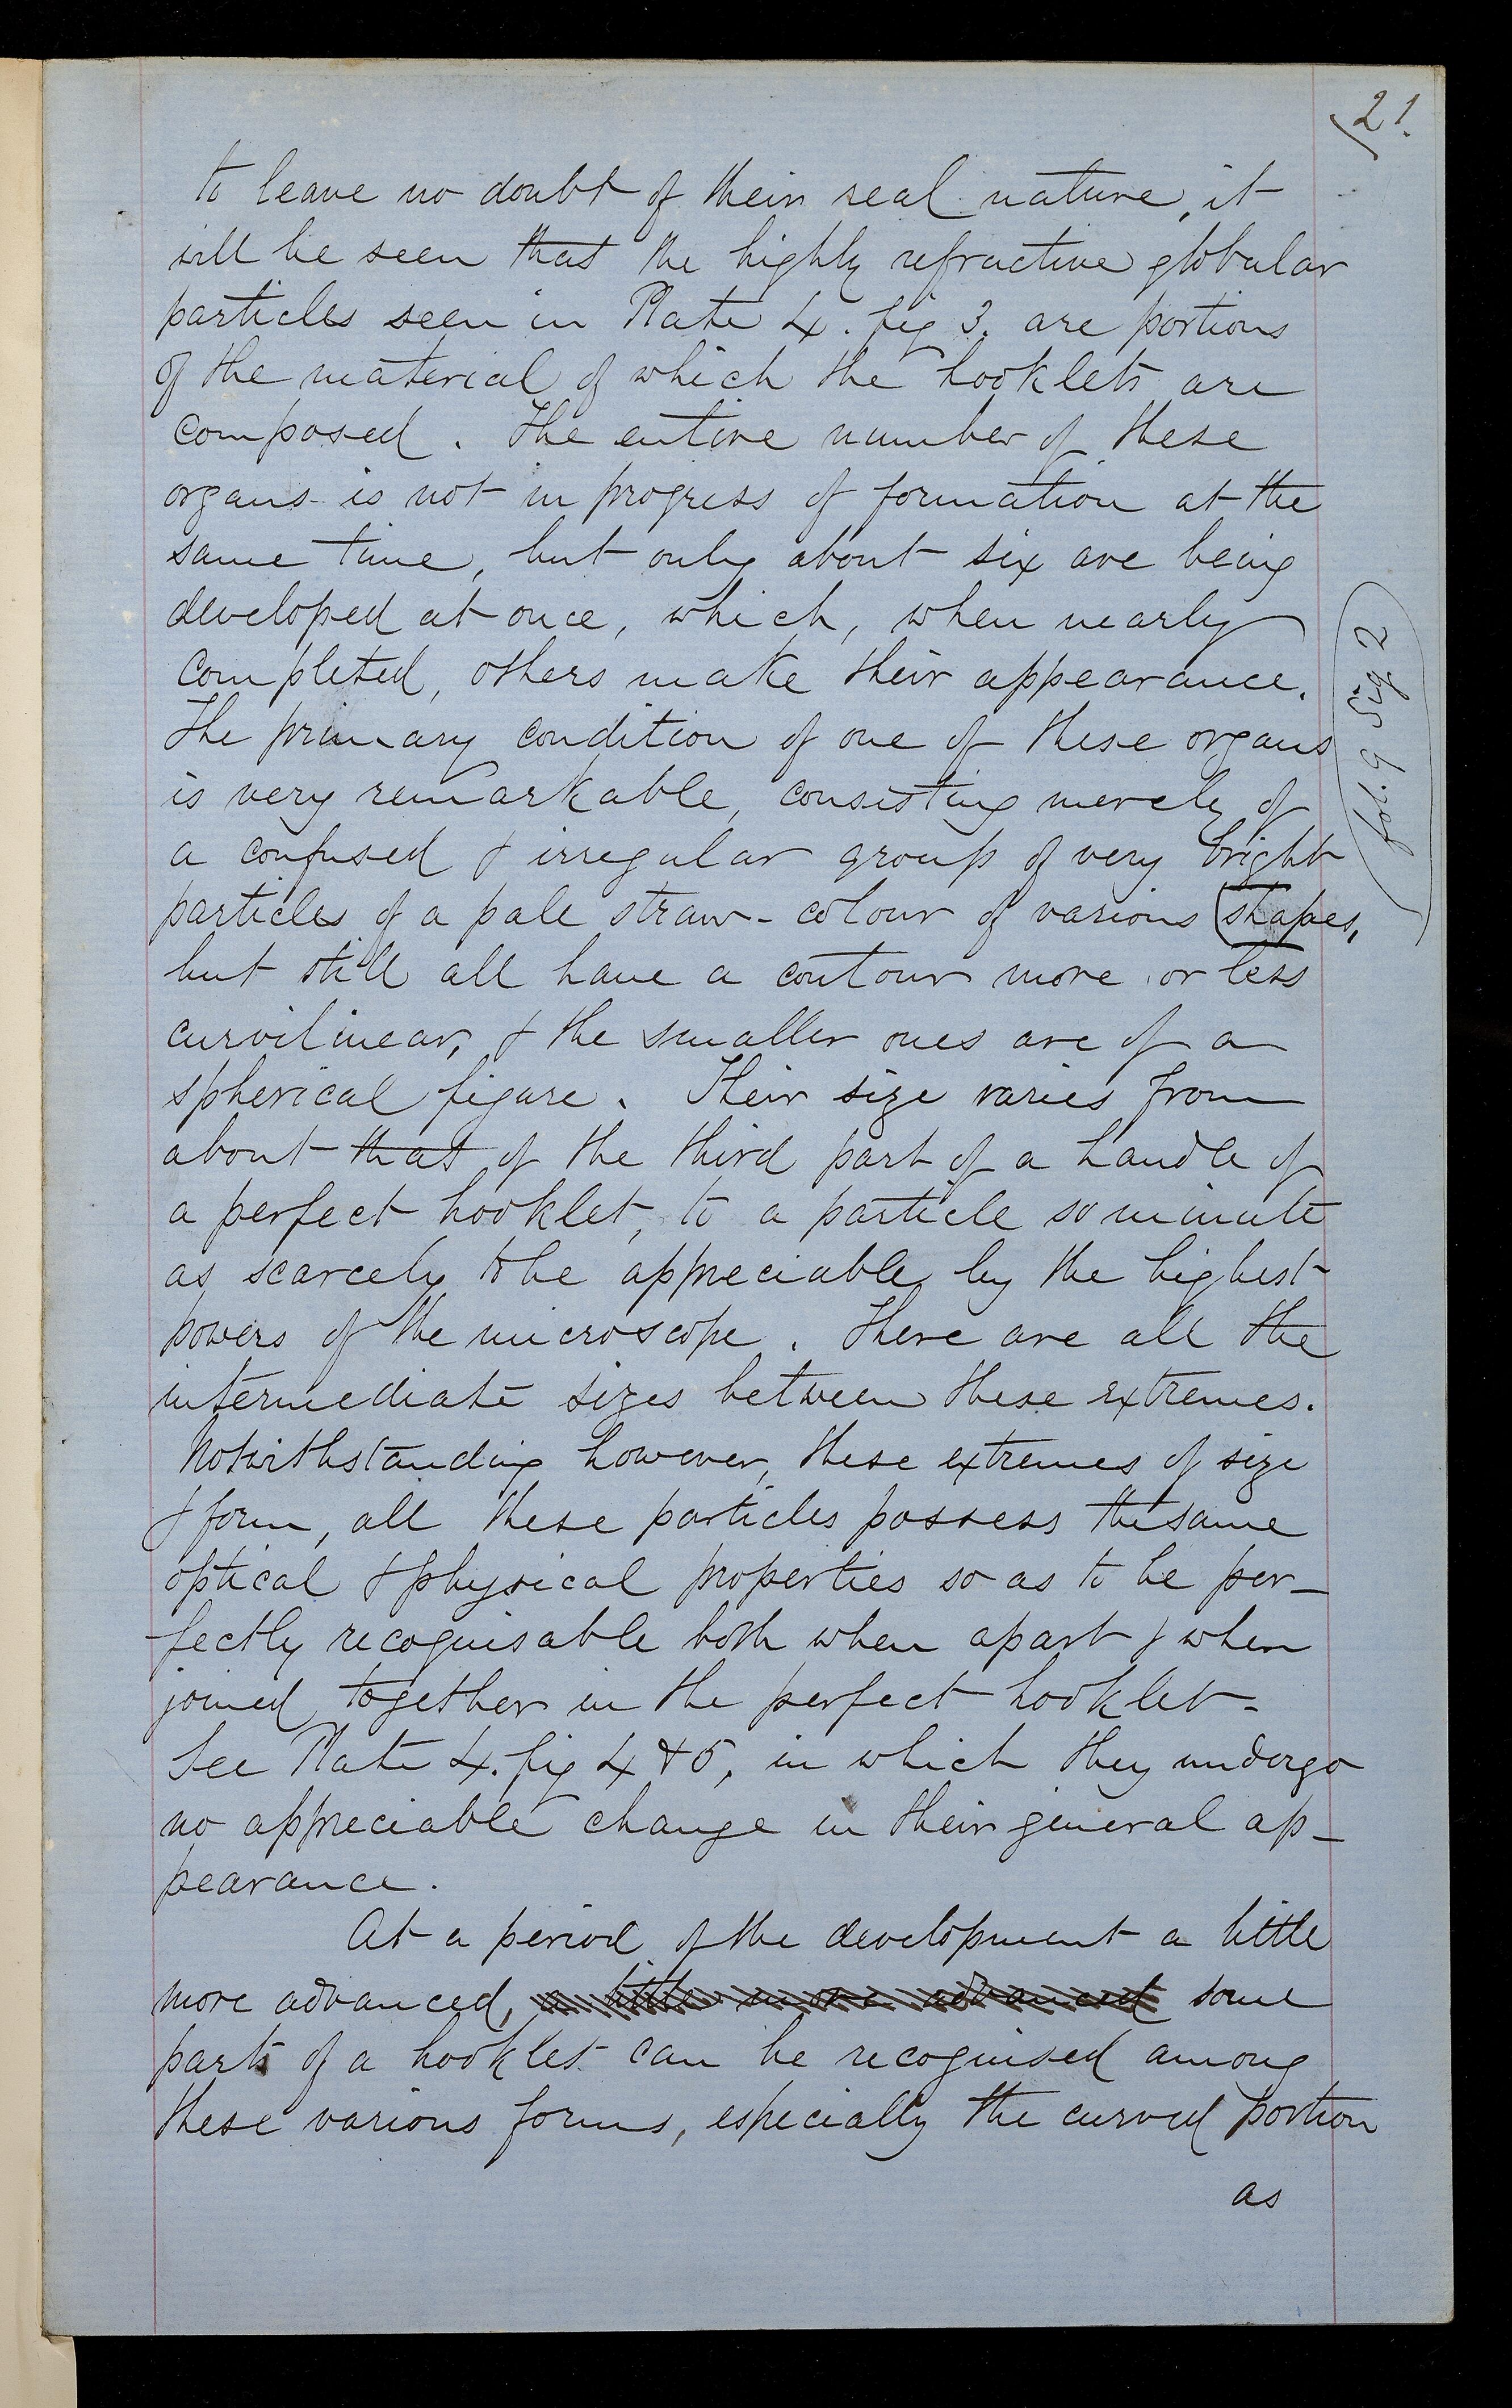 21.
to leave no doubt of their real nature, it
will be seen that the highly refractive globular
particles seen in Plate 4. fig 3. are portions
of the material of which the hooklets are
composed. The entire number of these
organs is not in progress of formation at the
same time, but only about six are being
developed at once, which, when nearly
completed, others make their appearance.
The primary condition of one of these organs
is very remarkable, consisting merely of
a confused & irregular group of very bright
particles of a pale straw-colour of various shapes,
but still all have a contour more or less
curvilinear, & the smaller ones are of a
spherical figure. Their size varies from
about that of the third part of a handle of
a perfect hooklet, to a particle so minute
as scarcely to be appreciable by the highest
powers of the microscope. There are all the
intermediate sizes between these extremes.
Notwithstanding however, these extremes of size
& form, all these particles possess the same
optical & physical properties so as to be per-
fectly recognisable both when apart & when
joined together in the perfect hooklet-
See Plate 4. fig 4 & 5, in which they undergo
no appreciable change in their general ap-
pearance.
At a period of the development a little
more advanced, a little more advanced some
parts of a hooklet can be recognised among
these various forms, especially the curved portion
as
fol. 9 Sig 2